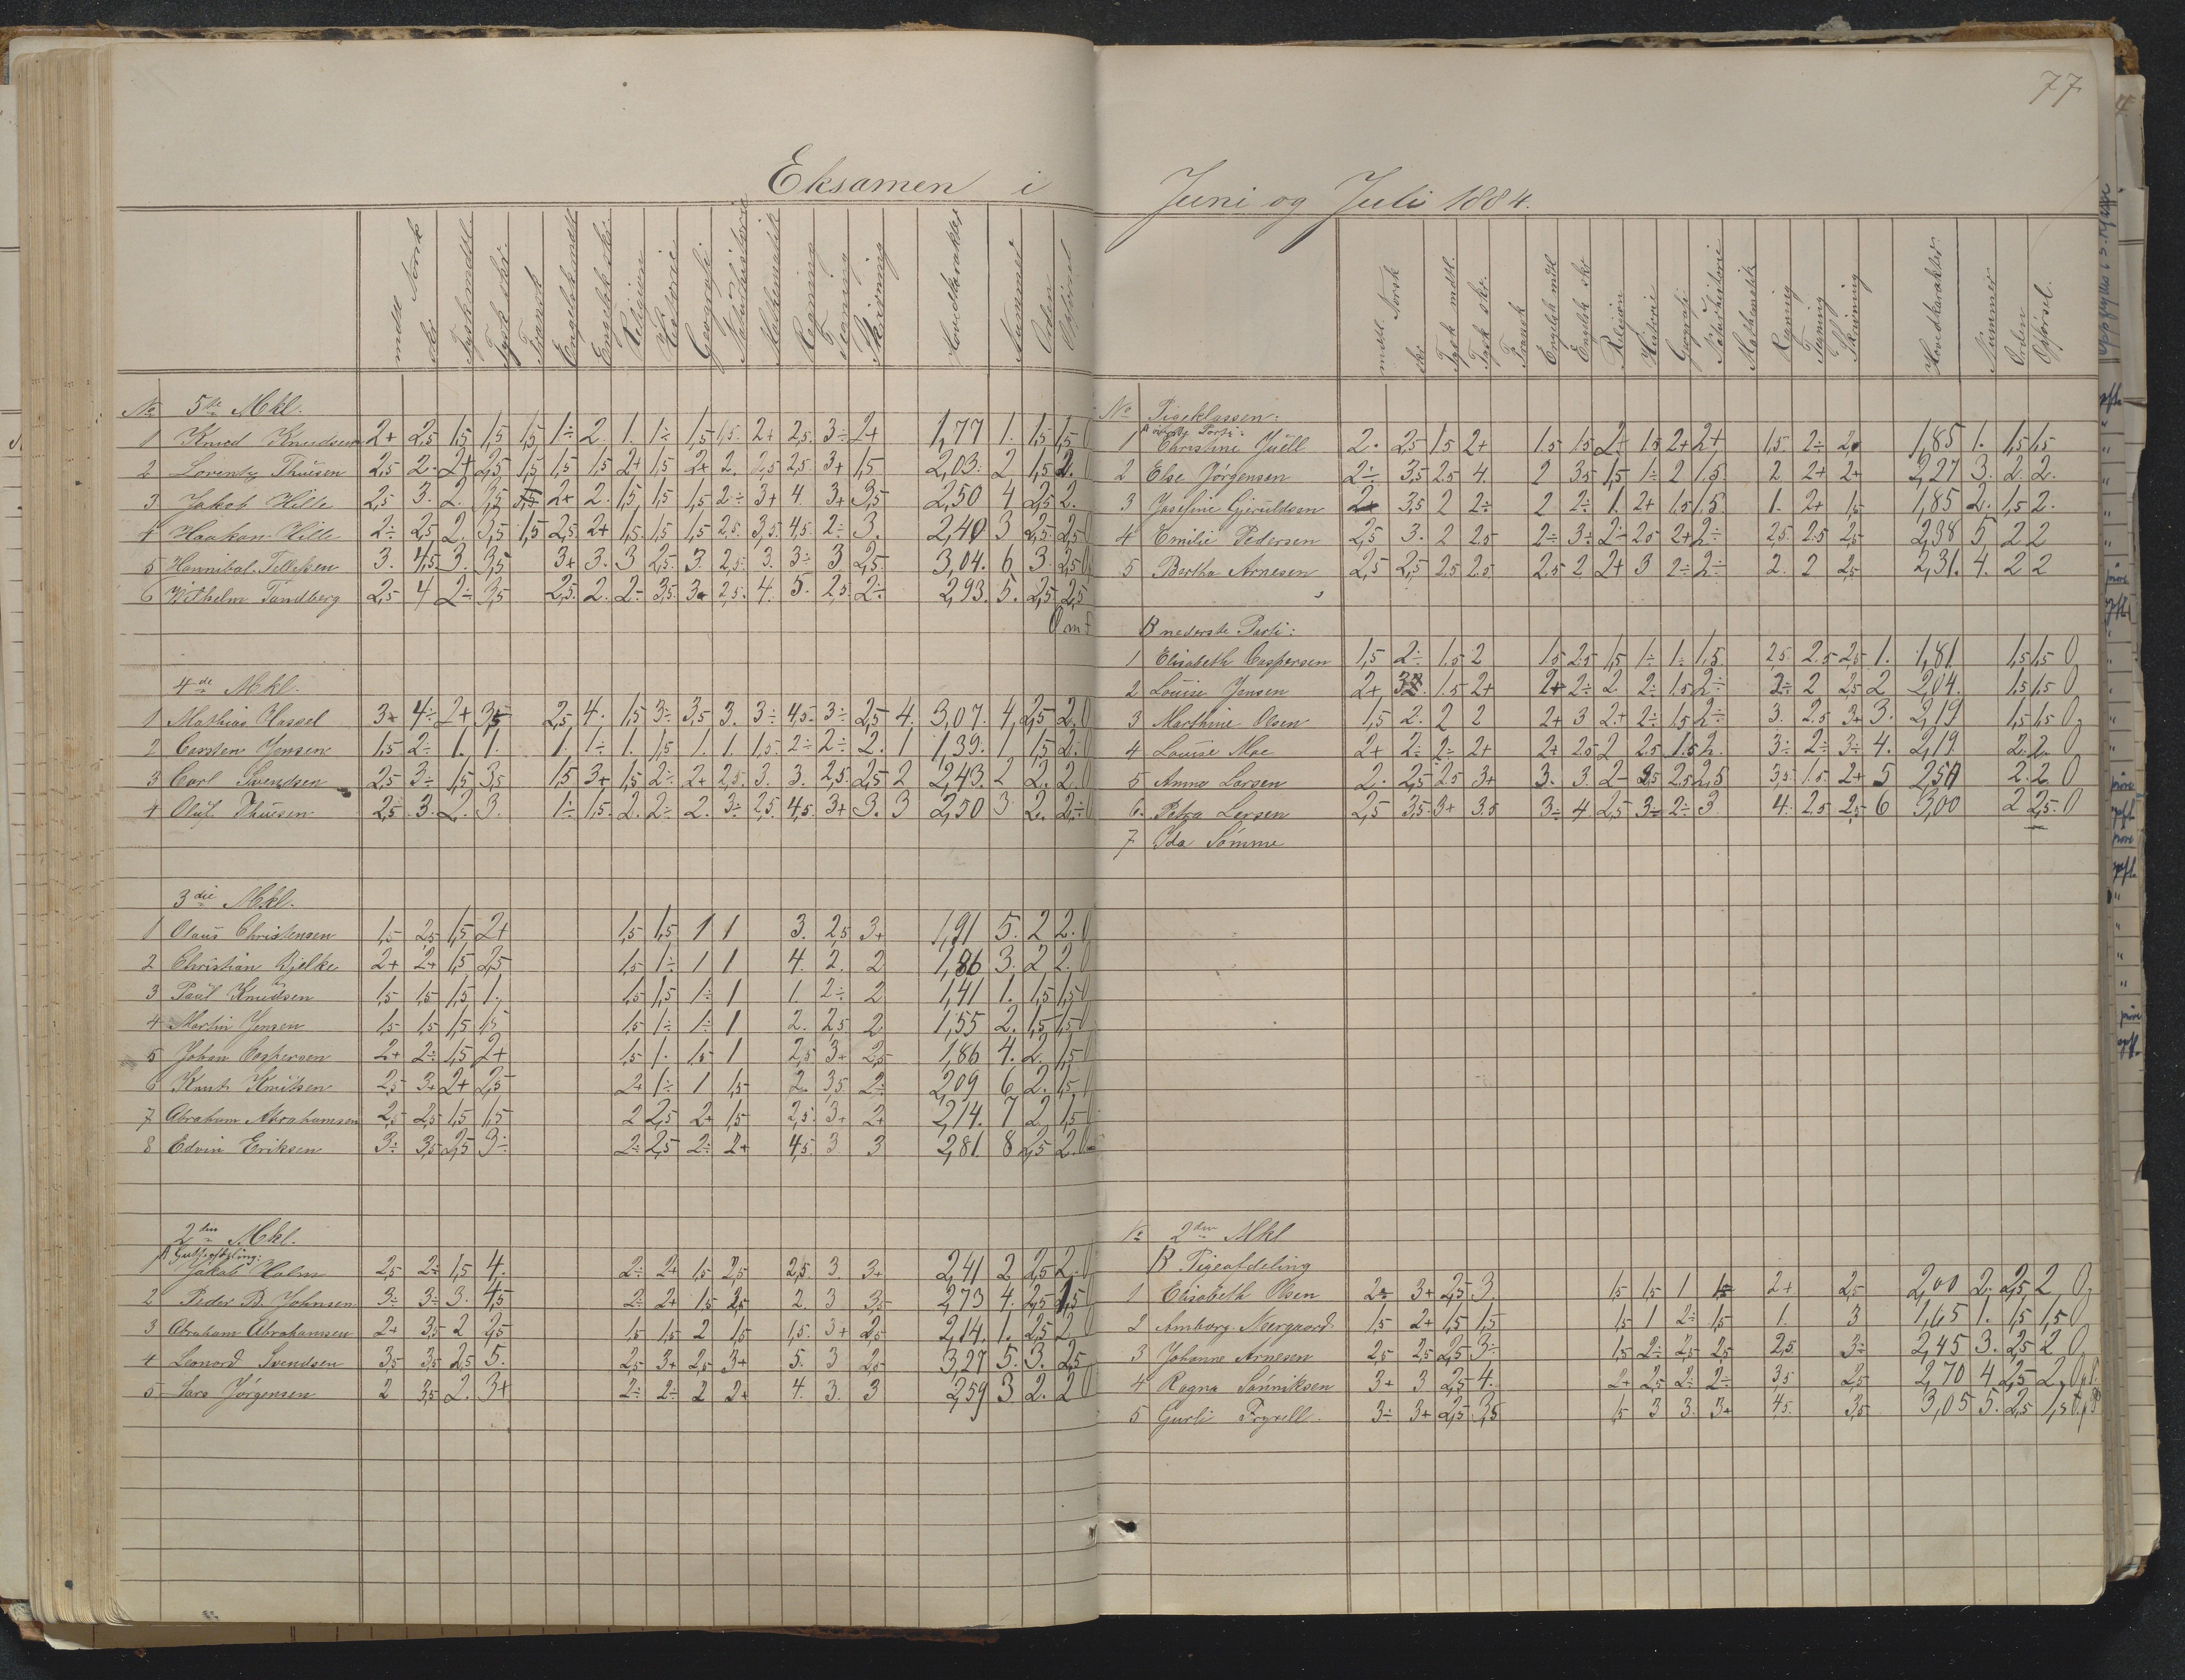 77
Eksamen i Juni og Juli 1884.
mdtl. Norsk
skr.
Tysk mdtl.
Tysk skr.
Fransk
Engelsk mdtl.
Engelsk skr.
Religion
Historie
Geografi
Naturhistorie
Mathematik
Regning
Tegning
Skrivning
Hovedkarakter
Nummer
Orden
Opførsel
No 5te Mkl.
1 Knud Knudsen 2+ 2,5 1,5 1,5 1,5 1÷ 2. 1. 1÷ 1,5 1,5. 2+ 2,5. 3÷ 2+ 1,77 1. 1,5 1,5 0
2 Lorentz Thuesen 2,5 2. 2+ 2,5 1,5 1,5 1,5 2+ 1,5 2+ 2. 2,5 2,5 3+ 1,5 2,03. 2 1,5 2. 0
3 Jakob Hille 2,5 3. 2. 3,5 2+ 2. 1,5 1,5 1,5 2÷ 3+ 4. 3+ 3,5 2,50 4 2,5 2.
4 Haakon Hille 2÷ 2,5 2. 3,5 1,5 2,5 2+ 1,5 1,5 1,5 2,5. 3,5 4,5. 2÷ 3. 2,40 3 2,5. 2,5
5 Hannibal Tellefsen 3. 4,5 3. 3,5 3+ 3. 3 2,5. 3. 2,5. 3. 3÷ 3 2,5. 3,04. 6 3. 2,5 0
6 Wilhelm Tandberg 2,5 4 2÷ 3,5 2,5. 2. 2÷ 3,5. 3+ 2,5. 4. 5. 2,5. 2÷ 2,93. 5. 2,5. 2,5
4de Mkl.
1 Mathias Hassel 3+ 4÷ 2+ 3,5 2,5 4. 1,5 3÷ 3,5 3. 3÷ 4,5. 3÷ 2,5 4. 3,07. 4 2,5 2. 0
2 Carsten Jensen 1,5 2÷ 1. 1. 1. 1÷ 1. 1,5 1. 1. 1,5. 2÷ 2÷ 2. 1 1,39. 1 1,5 2. 0
3 Carl Svendsen 2,5 3÷ 1,5 3,5 1,5 3+ 1,5 2÷ 2+ 2,5. 3. 3. 2,5. 2,5 2 2,43. 2 2. 2. 0
4 Oluf Thuesen 2,5 3. 2. 3. 1÷ 1,5. 2. 2÷ 2. 3÷ 2,5. 4,5. 3+ 3. 3 2,50 3 2. 2÷ 0
3die Mkl.
1 Olaus Christensen 1,5 2,5 1,5 2+ 1,5 1,5 1 1 3. 2,5 3+ 1,91 5. 2 2. 0
2 Christian Bjelke 2+ 2+ 1,5 2,5 1,5 1÷ 1 1 4. 2. 2 1,86 3. 2 2. 0
3 Paul Knudsen 1,5 1,5 1,5 1. 1,5 1,5 1÷ 1 1. 2÷ 2 1,41 1. 1,5 1,5 0
4 Martin Jensen 1,5 1,5 1,5 1,5 1,5 1÷ 1÷ 1 2. 2,5 2 1,55 2. 1,5 1,5 0
5 Johan Caspersen 2+ 2÷ 1,5 2+ 1,5 1. 1,5 1 2,5 3+ 2,5 1,86 4. 2. 1,5 0
6 Knut Knutsen 2,5 3+ 2+ 2,5 2+ 1÷ 1 1,5 2. 3,5 2÷ 2,09 6 2. 1,5 0
7 Abraham Abrahamsen 2,5 2,5 1,5 1,5 2 2,5 2+ 1,5 2,5. 3+ 2+ 2,14. 7 2 1,5 0
8 Edvin Eriksen 3÷ 3,5 2,5 3÷ 2÷ 2,5 2÷ 2+ 4,5. 3 3 2,81. 8 2,5 2. 0
2den Mkl.
A Gutteafdeling:
1 Jakob Holm 2,5 2÷ 1,5 4. 2÷ 2+ 1,5 2,5 2,5. 3. 3+ 2,41 2 2,5 2. 0
2 Peder B. Johnsen 3÷ 3÷ 3. 4,5 2÷ 2+ 1,5 2,5 2. 3 3,5 2,73 4. 2,5 1,5 0
3 Abraham Abrahamsen 2+ 3,5 2 2,5 1,5 1,5 2 1,5 1,5. 3+ 2,5 2,14. 1. 2,5 2 0
4 Leonord Svendsen 3,5 3,5 2,5 5. 2,5 3+ 2,5 3+ 5. 3 2,5 3,27 5. 3. 2,5
5 Lars Jørgensen 2 3,5 2. 3+ 2÷ 2÷ 2 2+ 4. 3. 3 2,59 3 2. 2 0
mdtl. Norsk
skr.
Tysk mdtl.
Tysk skr.
Fransk
Engelsk mdtl
Engelsk skr
Religion
Historie
Geografi
Naturhistorie
Mathematik
Regning
Tegning
Skrivning
Hovedkarakter.
Nummer
Orden
Opførsel.
No Pigeklassen:
A øverste Parti:
1 Christine Juell 2. 2,5 1.5 2+ 1.5 1.5 2+ 1.5 2+ 2+ 1,5. 2÷ 2. 1,85 1. 1,5 1,5
2 Else Jørgensen 2÷ 3,5 2.5 4. 2 3.5 1,5 1÷ 2 1.5. 2 2+ 2+ 2,27 3. 2. 2.
3 Josefine Gjeruldsen 2+ 3,5 2 2÷ 2 2÷ 1. 2+ 1.5 1.5. 1. 2+ 1,5 1,85 2. 1,5 2.
4 Emilie Pedersen 2,5 3. 2 2.5 2÷ 3÷ 2÷ 2.5 2+ 2÷ 2,5. 2.5 2,5 2,38 5 2 2
5 Bertha Arnesen 2,5 2,5 2.5 2.5 2.5 2 2+ 3 2÷ 2÷ 2. 2 2,5 2,31. 4. 2 2
B nederste Parti:
1 Elisabeth Caspersen 1,5 2÷ 1.5 2 1.5 2.5 1,5 1÷ 1÷ 1,5. 2,5. 2.5 2,5 1. 1,81. 1,5 1,5 0
2 Louise Jensen 2+ 1.5 2+ 2+ 2÷ 2. 2÷ 1.5 2÷ 2÷ 2 2,5 2 2,04. 1,5 1,5 0
3 Marthine Olsen 1,5 2. 2 2 2+ 3 2+ 2÷ 1.5 2÷ 3. 2.5 3+ 3. 2,19 1,5 1,5 0
4 Louise Moe 2+ 2÷ 2÷ 2+ 2+ 2.5 2 2.5 1.5 2. 3÷ 2÷ 3÷ 4. 2,19. 2. 2. 0
5 Anna Larsen 2. 2,5 2.5 3+ 3. 3. 2÷ 2,5 2.5 2,5 3,5. 1.5. 2+ 5 2,50 2. 2 0
6. Petra Larsen 2,5 3,5. 3+ 3.5 3÷ 4 2,5 3÷ 2÷ 3. 4. 2.5 2,5 6 3,00 2 2,5. 0
7 Ida Sømme
No 2den Mkl
B Pigeafdeling
1 Elisabeth Olsen 2÷ 3+ 2,5 3. 1,5 1,5 1 1,5 2+ 2,5 2,00 2. 2,5 2 0
2 Amborg Neergaard 1,5 2+ 1,5 1,5 1,5 1 2÷ 1,5 1. 3 1,65 1. 1,5 1,5 0
3 Johanne Arnesen 2,5 2,5 2,5 3÷ 1,5 2÷ 2,5 2,5 2,5 3÷ 2,45 3. 2,5 2 0
4 Ragna Sønniksen 3+ 3 2,5 4. 2+ 2,5 2÷ 2÷ 3,5 2,5 2,70 4 2,5 2
5 Gurli Fryxell. 3÷ 3+ 2,5 3,5 1,5 3 3. 3+ 4,5. 3,5 3,05 5. 2,5 1,5